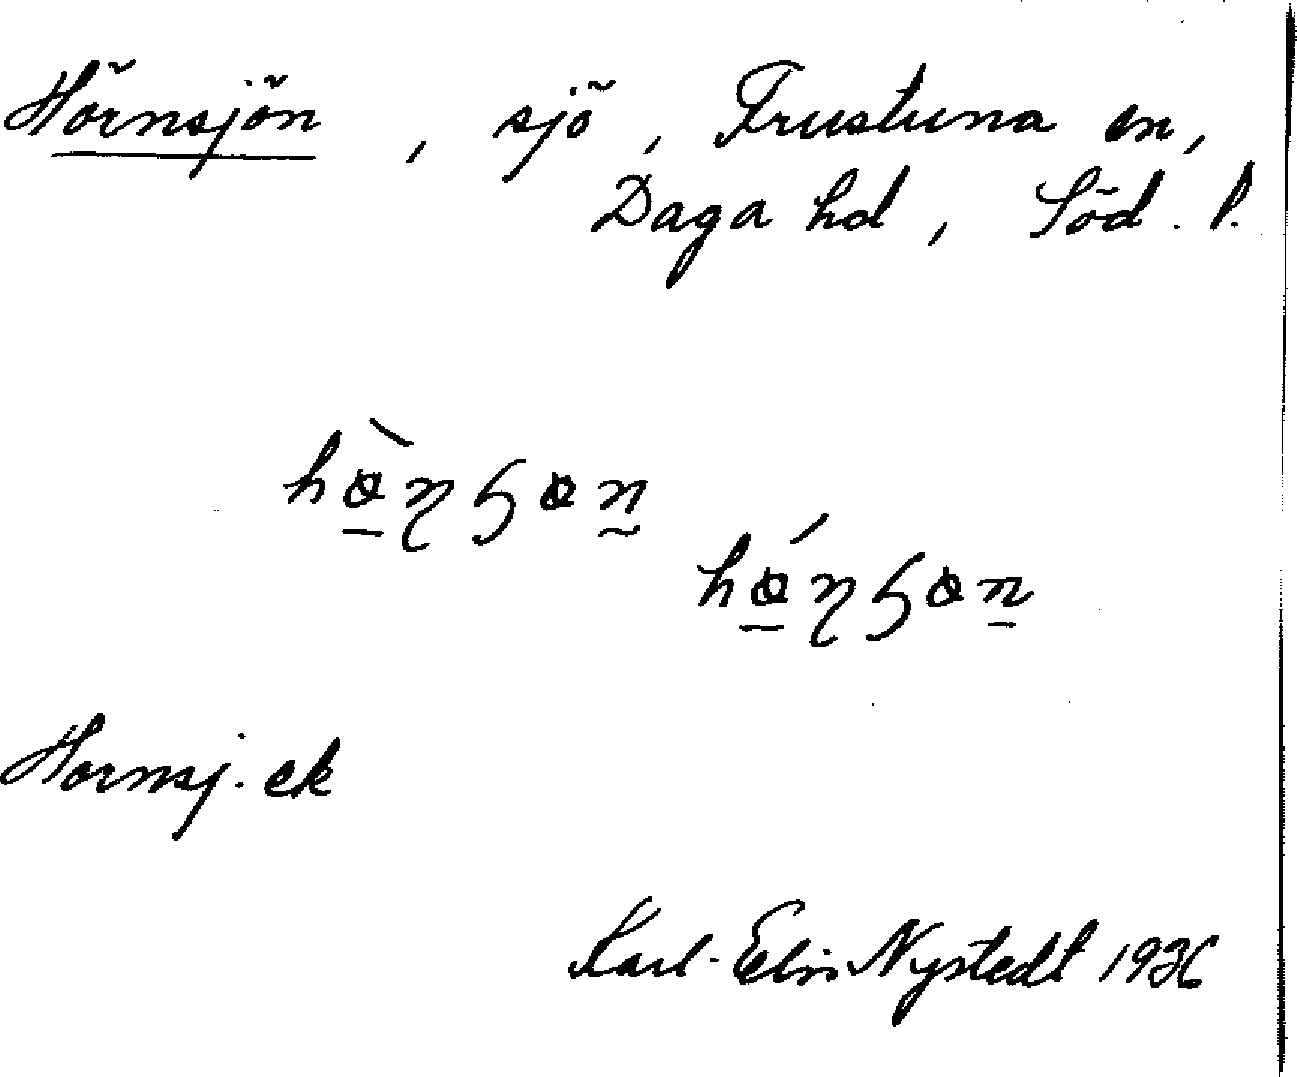 Hörnsjön, sjö, Frustuna sn,
Daga hd, Söd. l.
Hornsj. ek
Karl-Elis Nystedt 1936